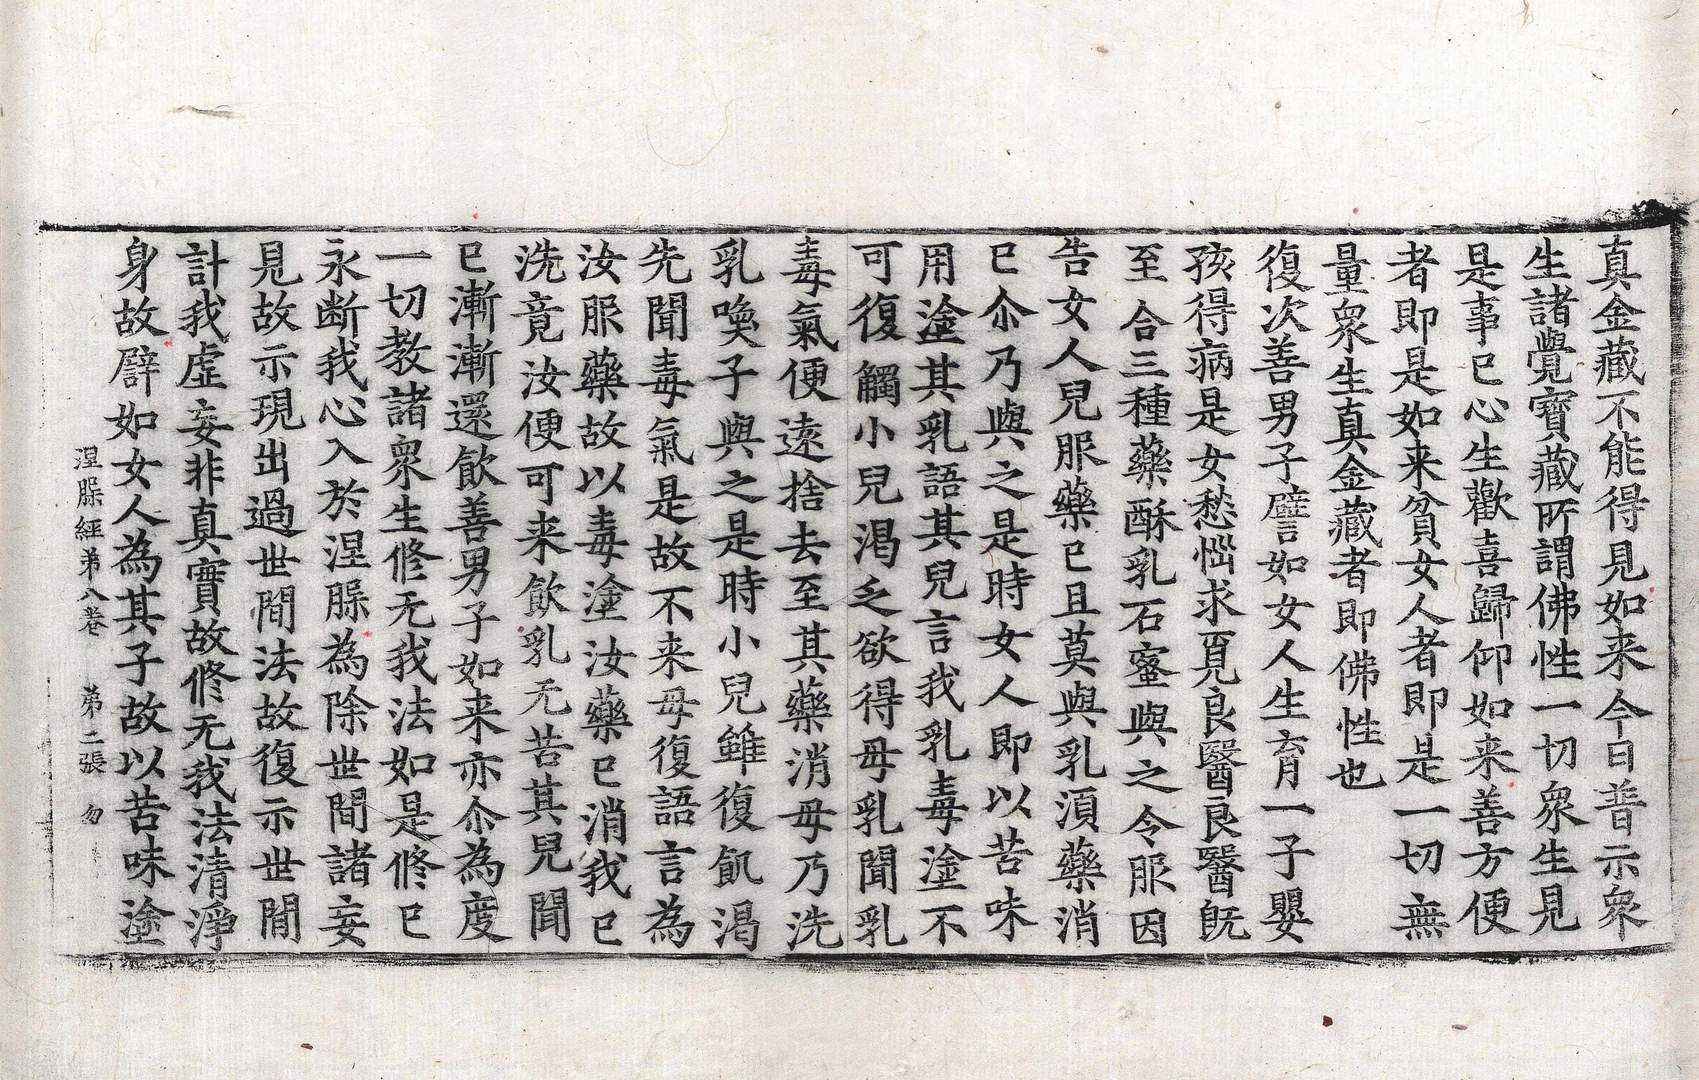 真金藏不能得見如来今日普示衆
生諸覺寶藏所謂佛性一切衆生見
是事已心生歡喜歸仰如来善方便
者即是如来貧女人者即是一切無
量衆生真金藏者即佛性也
復次善男子譬如女人生育一子嬰
孩得病是女愁惱求覓良醫良醫旣
至合三種藥酥乳石蜜與之令服因
告女人兒服藥已且莫與乳湏藥消
已尒乃與之是時女人即以苦味
用塗其乳語其兒言我乳毒塗不
可復觸小兒渴乏欲得母乳聞乳
毒氣便遠捨去至其藥消母乃洗
乳喚子與之是時小兒雖復飢渴
先聞毒氣是故不来母復語言為
汝服藥故以毒塗汝藥已消我已
洗竟汝便可来飲乳无苦其兒聞
已漸漸還飲善男子如来亦尒為度
一切教諸衆生修无我法如是修已
永断我心入於涅槃為除世間諸妄
見故示現出過世間法故復示世間
計我虛妄非真實故修无我法清淨
身故辟如女人為其子故以苦味塗
涅槃經苐八卷 苐二張 勿